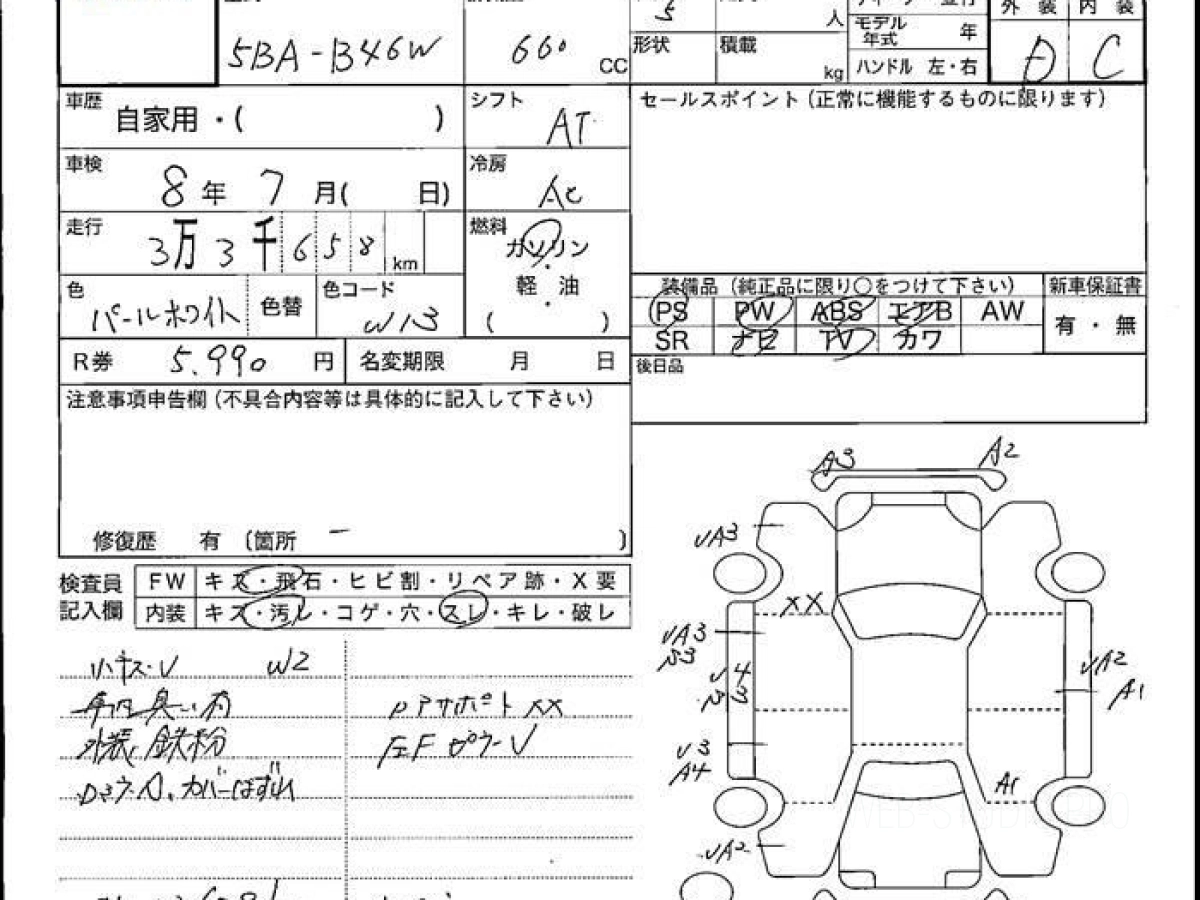 5BA-B46W
660
CC
5
人
形状
積載
kg
モデル
年式
年
ハンドル 左・右
外 装
内 装
D
C
車歴
自家用・( )
シフト
AT
セールスポイント(正常に機能するものに限ります)
車検
8年 7月( 日)
冷房
AC
走行
3万3千658 km
燃料
ガソリン
・
軽・油
・
( )
色
パールホワイト
色替
色コード
W13
装備品(純正品に限り○をつけて下さい)
新車保証書
PS PW ABS エアB AW
有・無
SR ナビ TV カワ
R券 5.990 円
名変期限 月 日
後日品
注意事項申告欄(不具合内容等は具体的に記入して下さい)
修復歴 有 (箇所 - )
検査員
記入欄
FW キズ・飛石・ヒビ割・リペア跡・X要
内装 キズ・汚レ・コゲ・穴・スレ・キレ・破レ
小キズ・V W2
車内臭い有
外装、鉄粉
カバーはずれ
PアサポートXX
左FピラーV
A3
A2
VA3
XX
VA3
B3
V4
B3
V3
A4
VA2
VA2
A1
A1